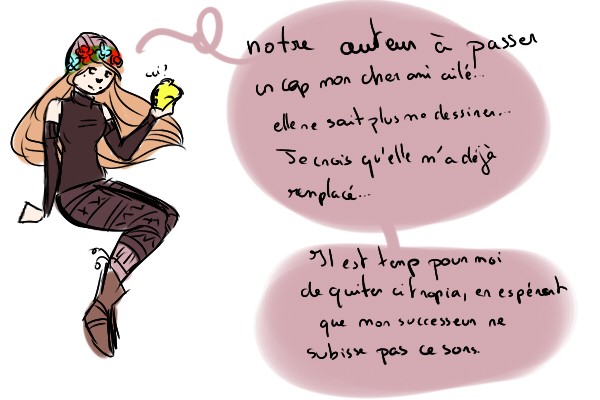 cui!
notre auteur à passer
un cap mon cher ami ailé...
elle ne sait plus me dessiner...
Je crois qu'elle m'a déjà
remplacé...
Il est temp pour moi
de quiter citropia, en espérent
que mon successeur ne
subisse pas ce sors.